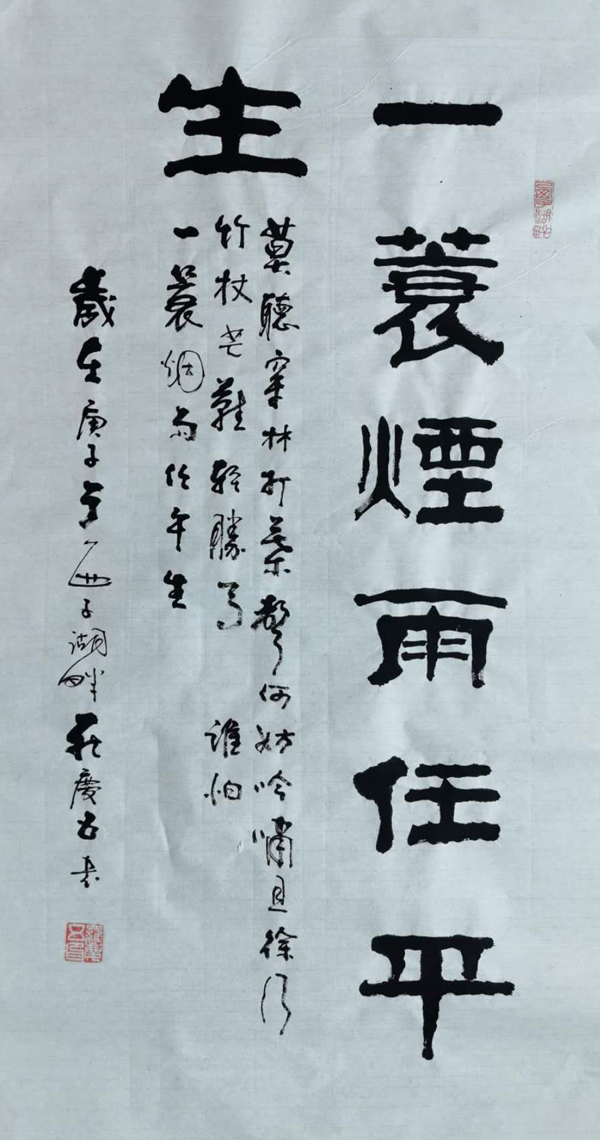 一蓑煙雨任平
生
莫聽穿林打葉聲何妨吟嘯且徐行
竹杖芒鞋輕勝馬 誰怕
一蓑烟雨任平生
歲在庚子子湖畔慶書